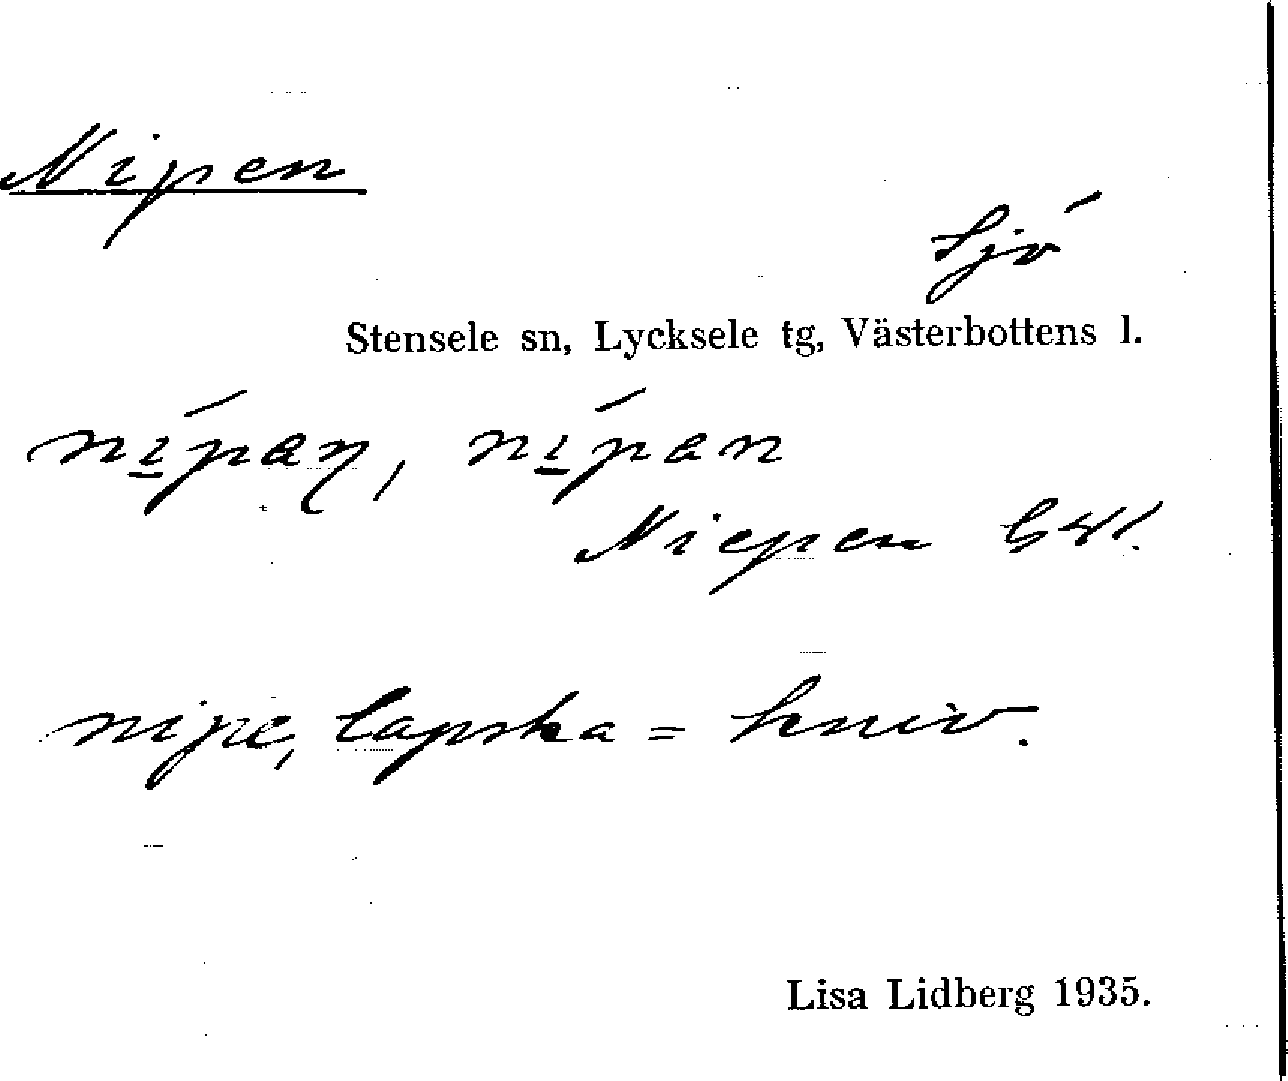 Nipen
Sjö
Stensele sn, Lycksele tg, Västerbottens l.
ní̱paꞑ, ní̱pan
Niepen
nipe, lapska = kniv.
Lisa Lidberg 1935.